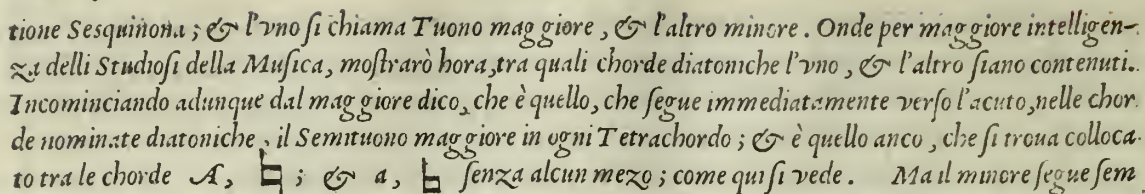 tione Sesquinona; & l'vno ſi chiama Tuono maggiore, & l'altro minore. Onde per maggiore intelligen-
za delli Studioſi della Muſica, moſtrarò hora, tra quali chorde diatoniche l'vno, & l'altro ſiano contenuti.
Incominciando adunque dal maggiore dico, che è quello, che ſegue immediatamente verſo l'acuto, nelle chor
de nominate diatoniche, il Semituono maggiore in ogni Tetrachordo; & è quello anco, che ſi troua colloca-
to tra le chorde A, ♮; & a, ♮ ſenza alcun mezo; come qui ſi vede. Ma il minore ſegue ſem